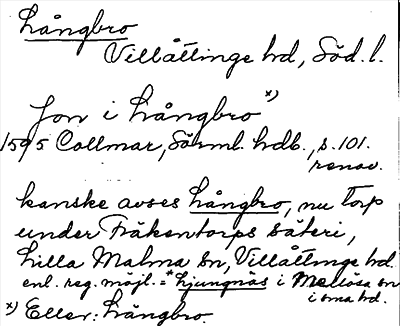 Långbro
Villåttinge hd, Söd. l.
Jon i Långbro x)
1595 Collmar, Sörml. hdb., s. 101.
renov.
kanske avses Långbro, nu torp
under Fräkentorps säteri,
Lilla Malma sn, Villåttinge hd.
enl. reg. möjl. = * Ljungnäs i Mellösa sn
i sma hd.
x) Eller: Långbro.